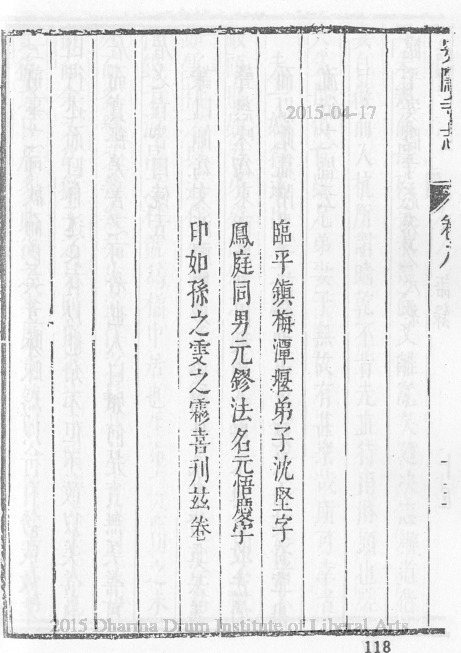 卷八
臨平鎮梅潭堰弟子沈堅字
鳳庭同男元鏐法名元悟慶字
印如孫之雯之霦喜刊茲卷
2015-04-17
2015 Dharma Drum Institute of Liberal Arts
118